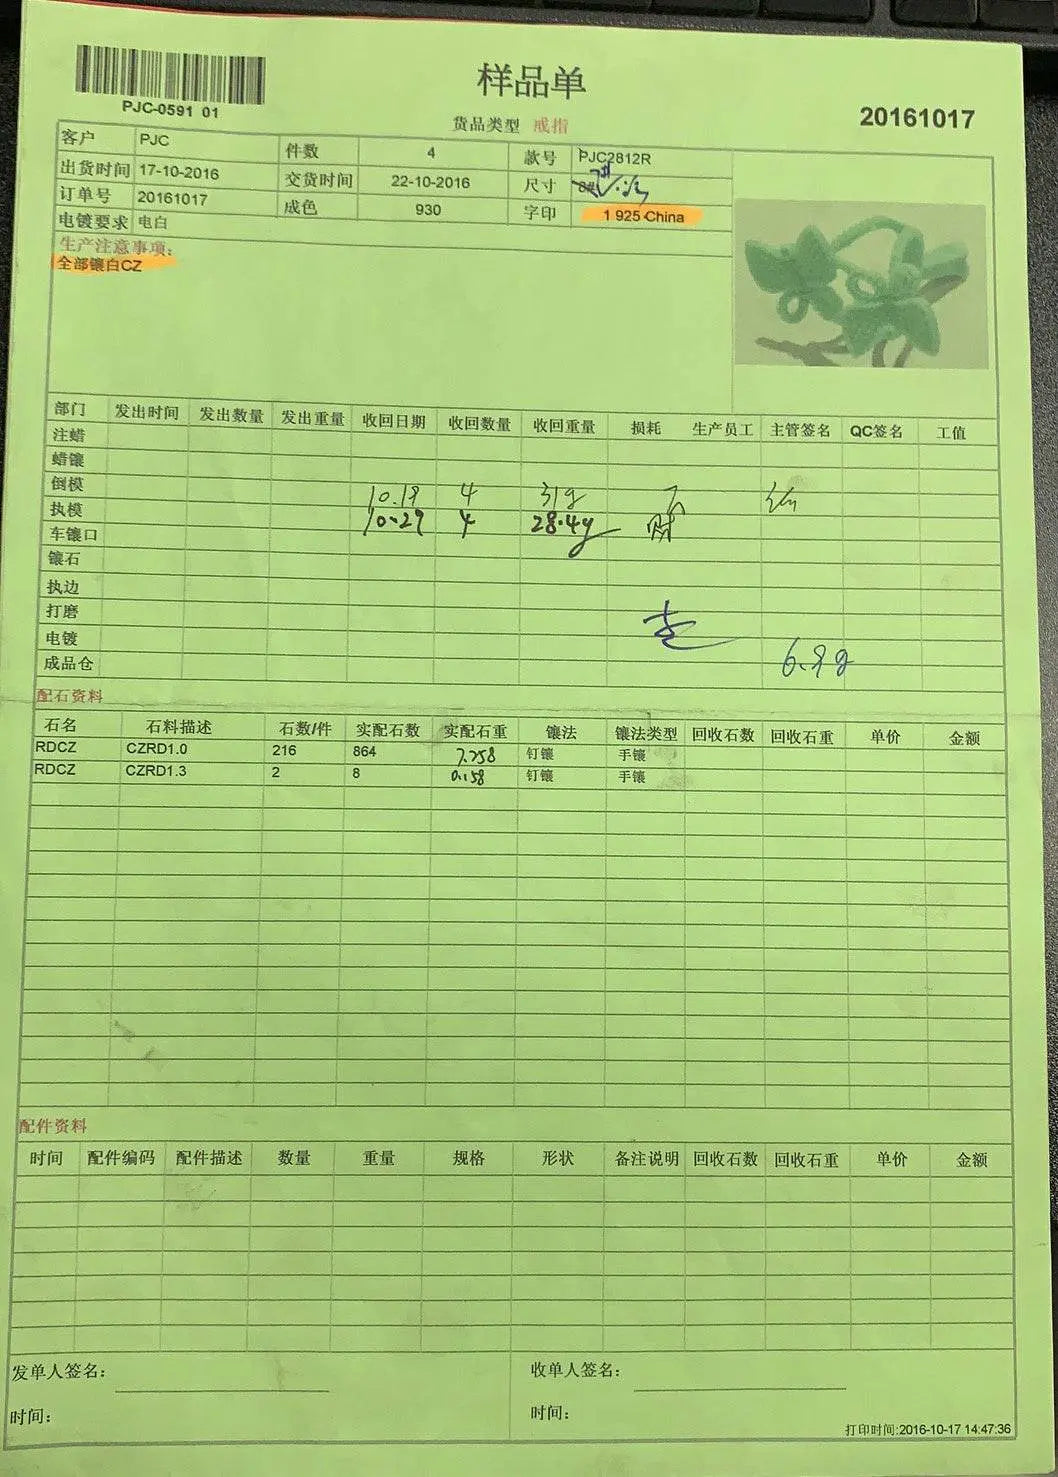 样品单
PJC-0591 01
货品类型 戒指
20161017
客户 PJC 件数 4 款号 PJC2812R
出货时间 17-10-2016 交货时间 22-10-2016 尺寸 8#
订单号 20161017 成色 930 字印 1 925 China
电镀要求 电白
生产注意事项:
全部镶白CZ
部门 发出时间 发出数量 发出重量 收回日期 收回数量 收回重量 损耗 生产员工 主管签名 QC签名 工值
注蜡
蜡镶
倒模 10.19 4 31g
执模 10.29 4 28.4g
车镶口
镶石
执边
打磨
电镀
成品仓 6.99g
配石资料
石名 石料描述 石数/件 实配石数 实配石重 镶法 镶法类型 回收石数 回收石重 单价 金额
RDCZ CZRD1.0 216 864 7.758 钉镶 手镶
RDCZ CZRD1.3 2 8 0.158 钉镶 手镶
配件资料
时间 配件编码 配件描述 数量 重量 规格 形状 备注说明 回收石数 回收石重 单价 金额
发单人签名: 收单人签名:
时间: 时间:
打印时间:2016-10-17 14:47:36